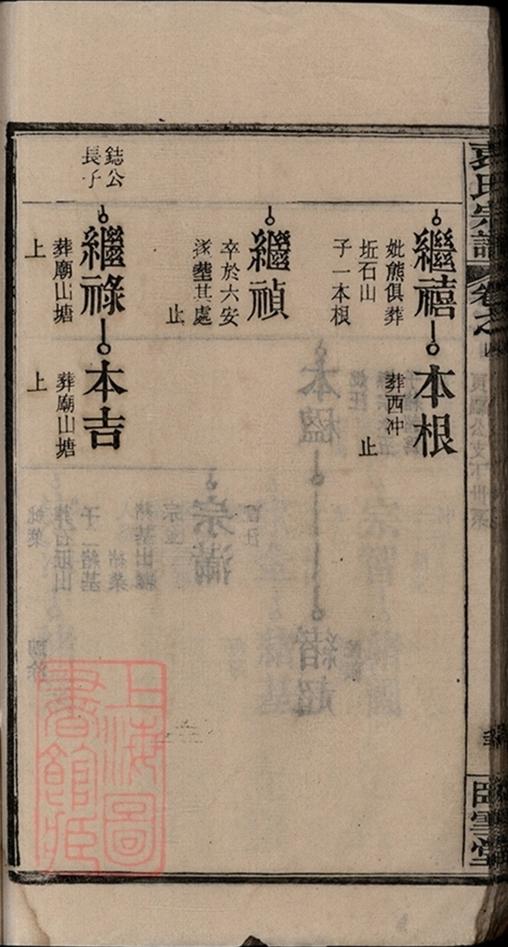 袁氏宗譜
卷之四
臥雪堂
繼禧
妣熊俱葬
坵石山
子一本根
本根
葬西冲
止
繼禎
卒於六安
遂塟其處
止
鋕公
長子
繼祿
葬廟山塘
上
本吉
葬廟山塘
上
上海圖
書館藏